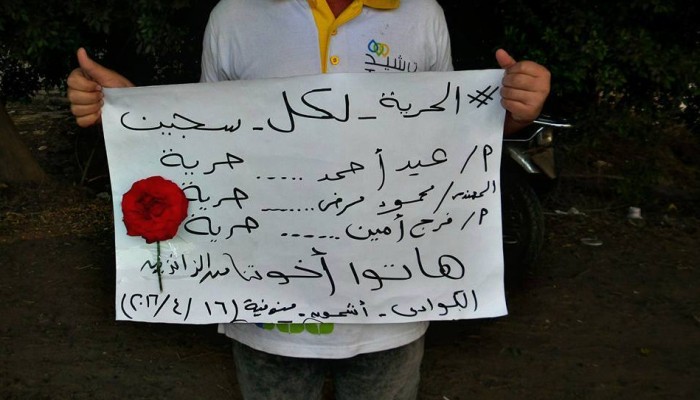 ناشيد
#الحرية_لكل_سجين
م/ عيد أحمد ..... حرية
المهندس/ محمود مرضى ..... حرية
م/ فرج أمين ..... حرية
هاتوا أخوتنا من الزنازين
الكوادى - أشمون - منوفية (١٦/٤/٢٠١٦)